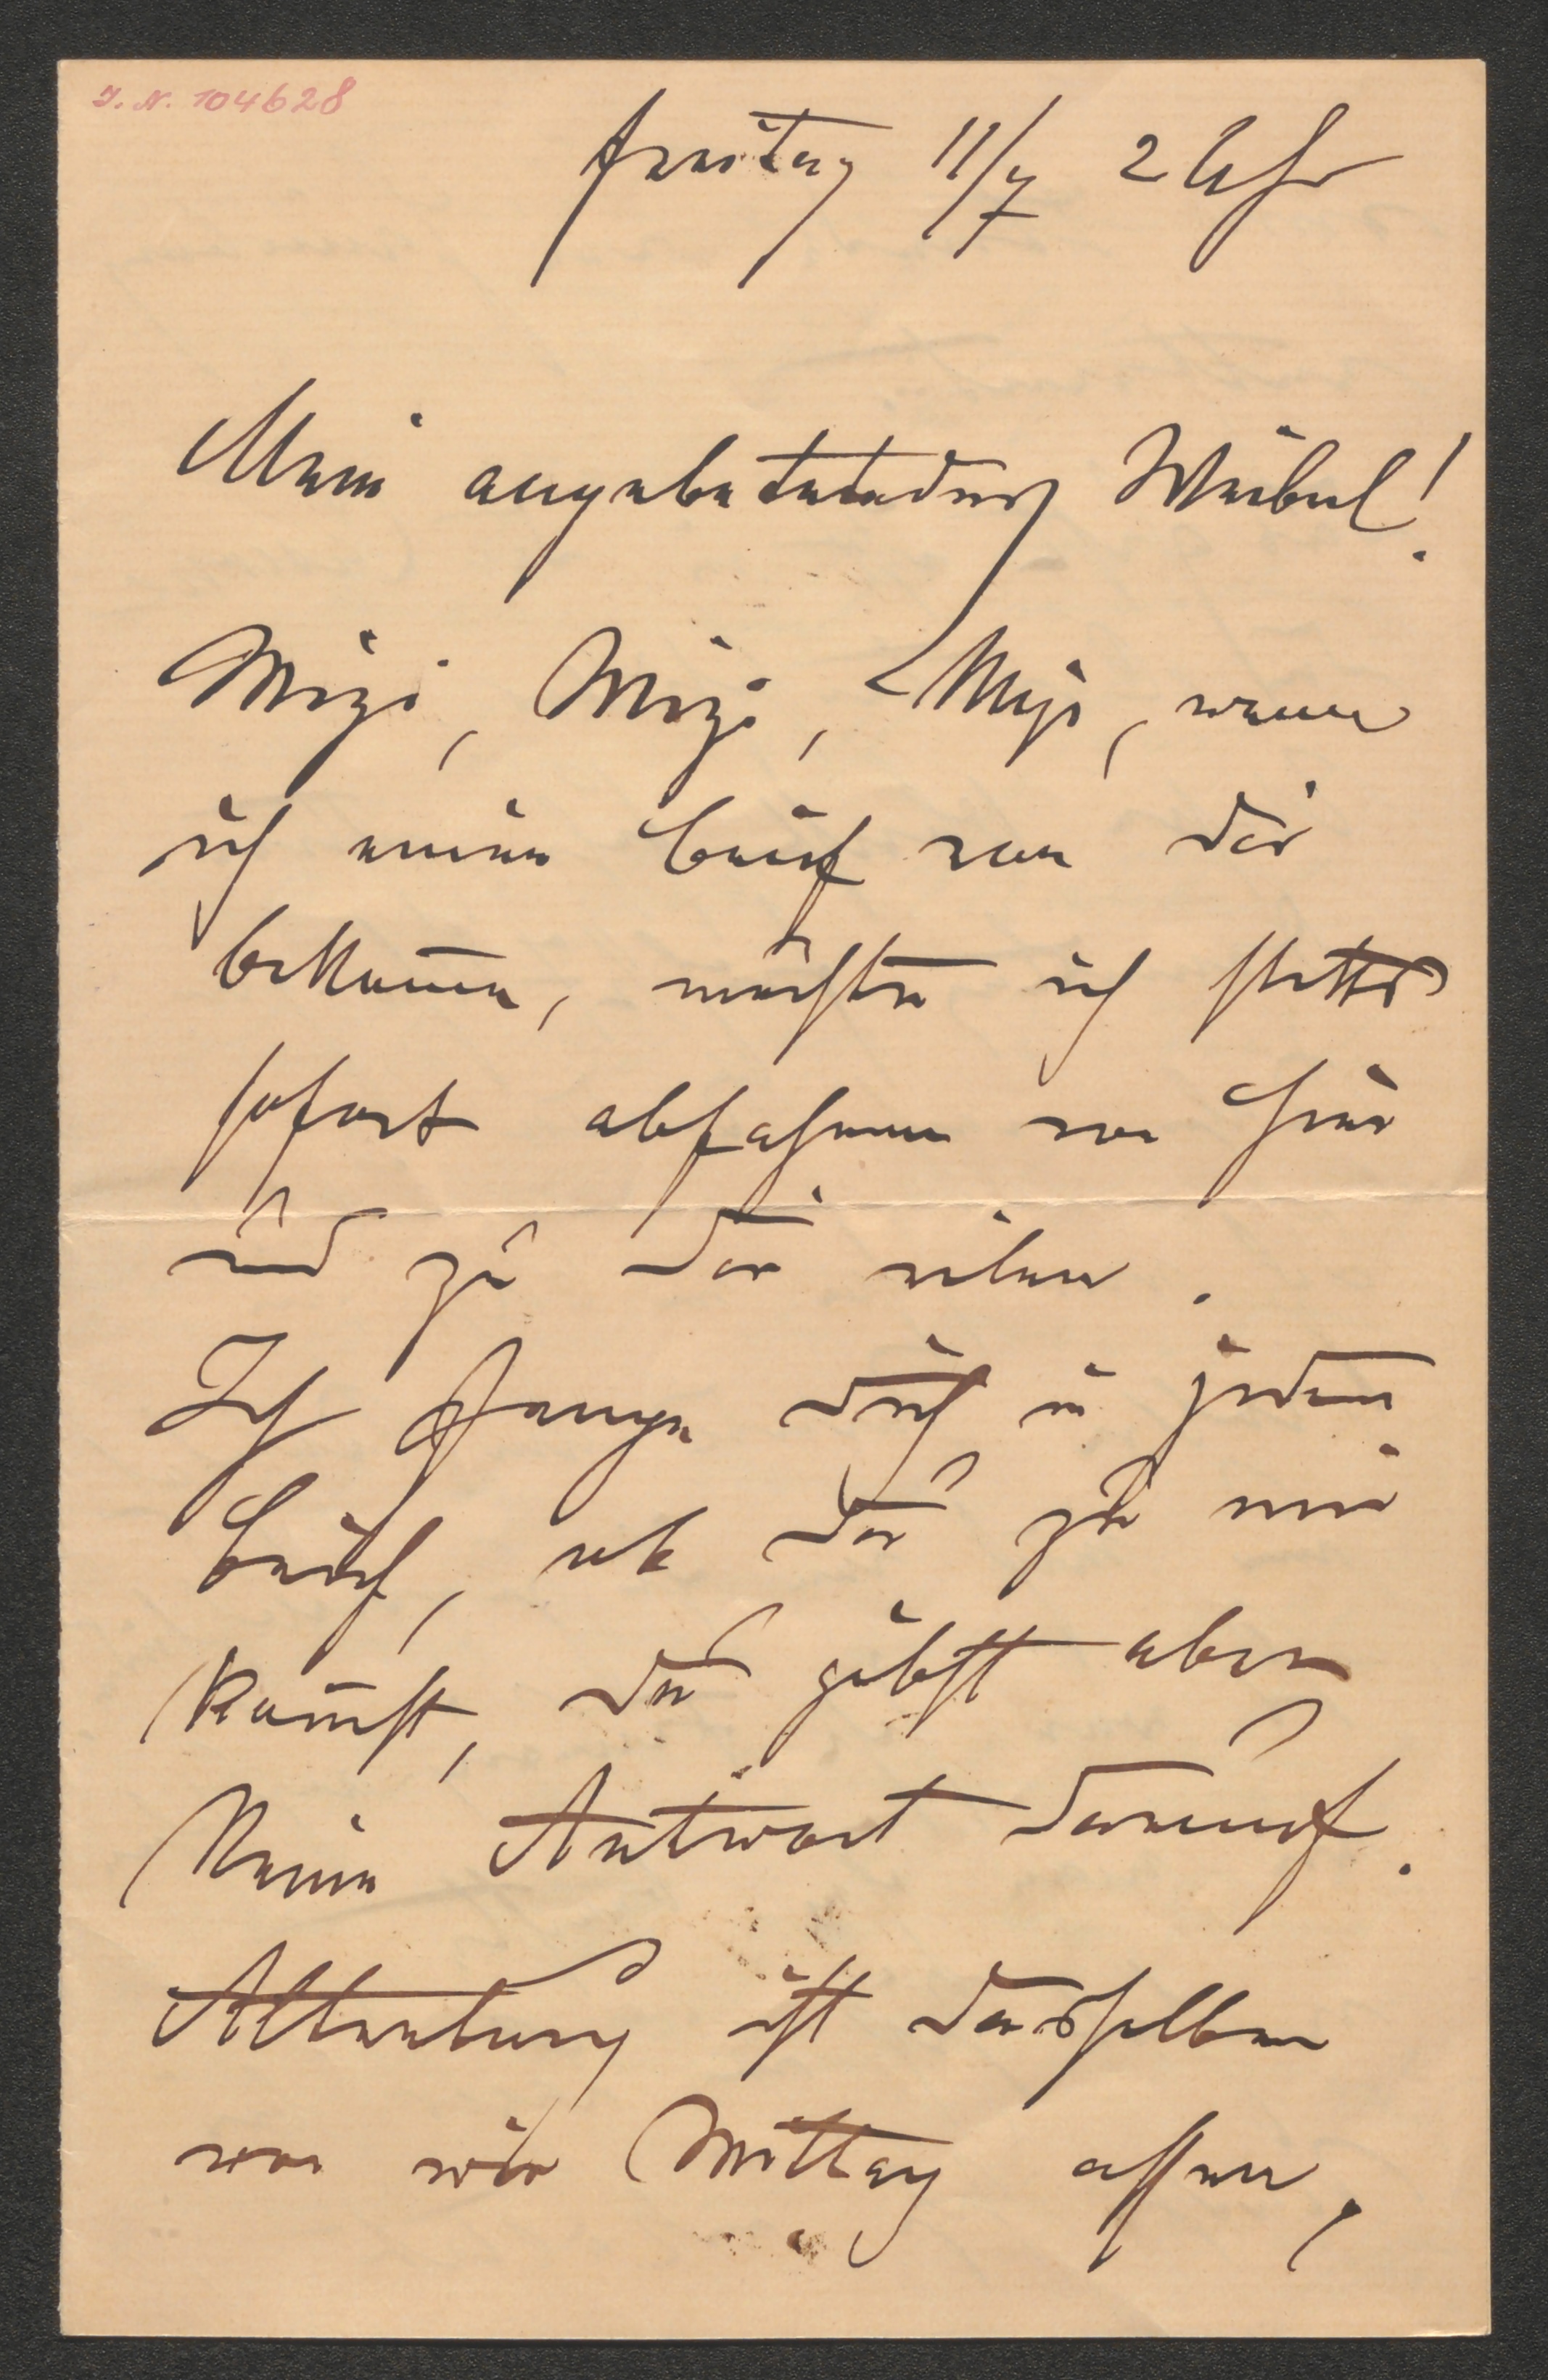 I. N. 104628
Freitag 11/7 2 Uhr
Mein angebetetes Weibul!
Mizi, Mizi, Mizi, wenn
ich einen Brief von dir
bekome, möchte ich stetts
sofort abfahren von hier
und zu dir eilen.
Ich frage dich in jedem
Brief, ob du zu mir
komst, du giebst aber
keine Antwort darauf.
Altenburg ist dasselbe
wo wir Mittag assen,